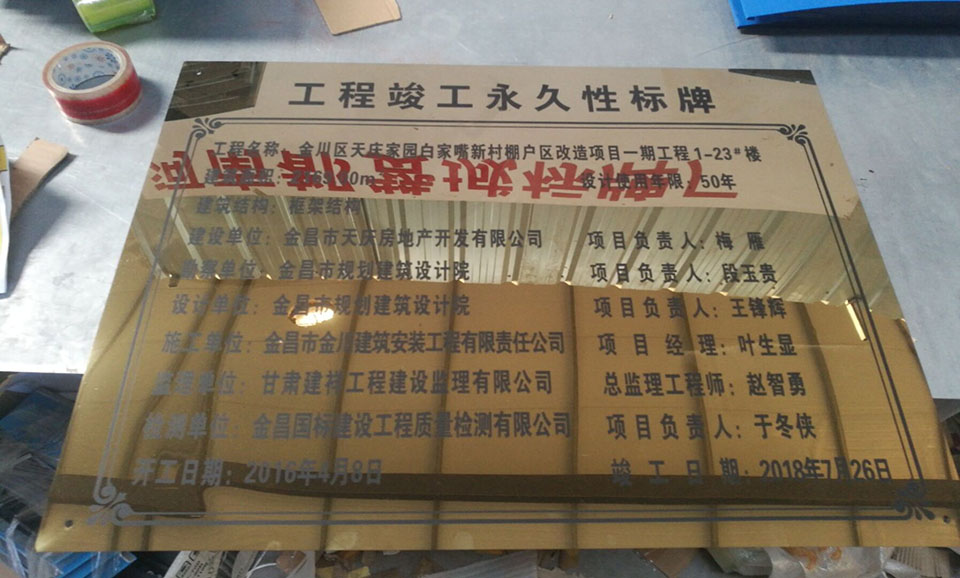 工程竣工永久性标牌
工程名称: 金川区天庆家园白家嘴新村棚户区改造项目一期工程1-23#楼
设计使用年限: 50年
建筑结构: 框架结构
建设单位: 金昌市天庆房地产开发有限公司 项目负责人: 梅 雁
勘察单位: 金昌市规划建筑设计院 项目负责人: 段玉贵
设计单位: 金昌市规划建筑设计院 项目负责人: 王锋辉
施工单位: 金昌市金川建筑安装工程有限责任公司 项目经理: 叶生显
监理单位: 甘肃建祥工程建设监理有限公司 总监理工程师: 赵智勇
检测单位: 金昌国标建设工程质量检测有限公司 项目负责人: 于冬侠
开工日期: 2016年4月8日 竣工日期: 2018年7月26日